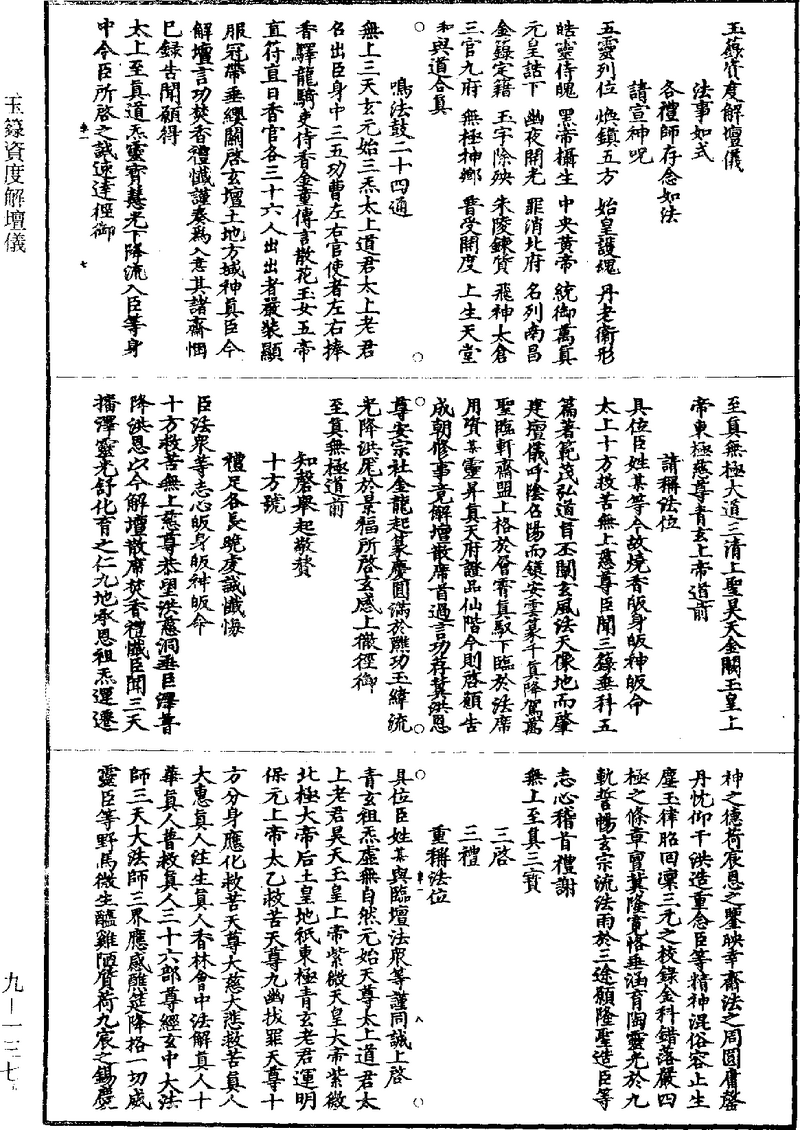 玉籙資度解壇儀
法事如式
各禮師存念如法
請宣神呪
五靈列位 煥鎮五方 始皇護魂 丹老衛形
皓靈侍魄 黑帝攝生 中央黃帝 統御萬真
元皇誥下 幽夜開光 罪消北府 名列南昌
金籙定籍 玉字除殃 朱陵鍊質 飛神太倉
三官九府 無極神鄉 普受開度 上生天堂
和與道合真
鳴法鼓二十四通
無上三天玄元始三炁太上道君太上老君
名出臣身中三五功曹左右官使者左右捧
香驛龍騎吏侍香金童傳言散花玉女五帝
直符直日香官各三十六人出出者嚴裝顯
服冠帶垂纓關啓玄壇土地方域神真臣今
解壇言功焚香禮懺謹奏為入意其諸齋悃
已錄告聞願得
太上至真道炁靈寶慧光下降流入臣等身
中令臣所啓之誠速達徑御
至真無極大道三清上聖昊天金闕玉皇上
帝東極慈尊青玄上帝道前
請稱法位
具位臣姓某等今故燒香皈身皈神皈命
太上十方救苦無上慈尊臣聞三籙垂科五
篇著範茂弘道旨丕闡玄風法天像地而肇
建壇儀呼陰召陽而鎮安雲篆千真降駕萬
聖臨軒齋盟上格於層霄真馭下臨於法席
用資某靈昇真天府證品仙階今則啓願告
成朝修事竟解壇散席首過言功荐冀洪恩
尊安宗社金龍起篆慶圓滿於醮功玉緯流
光降洪厖於景福所啓玄感上徹徑御
至真無極道前
知磬舉起敬贊
十方號
禮足各長跪虔誠懺悔
臣法眾等志心皈身皈神皈命
十方救苦無上慈尊恭望洪慈洞垂巨澤普
降洪恩以今解壇散席焚香禮懺臣聞三天
播澤靈光舒化育之仁九地承恩祖炁運遷
神之德荷宸恩之鑒映幸齋法之周圓庸罄
丹忱仰干洪造重念臣等精神混俗容止生
塵玉律昭回凜三元之校錄金科錯落嚴四
極之條章實冀隆寬恪垂涵育陶靈光於九
軌哲暢玄宗流法雨於三途願隆聖造臣等
志心稽首禮謝
無上至真三寶
三啓
三禮
重稱法位
具位臣姓某與臨壇法眾等謹同誠上啓
青玄祖炁虛無自然元始天尊太上道君太
上老君昊天玉皇上帝紫微天皇大帝紫微
北極大帝后土皇地祇東極青玄老君運明
保元上帝太乙救苦天尊九幽拔罪天尊十
方分身應化救苦天尊大慈大悲救苦真人
大惠真人往生真人香林會中法解真人十
華真人普救真人三十六部尊經玄中大法
師三天大法師三界應感醮筵降格一切威
靈臣等野馬微生醯雞陋質荷九宸之錫慶
玉籙資度解壇儀
九—一三七